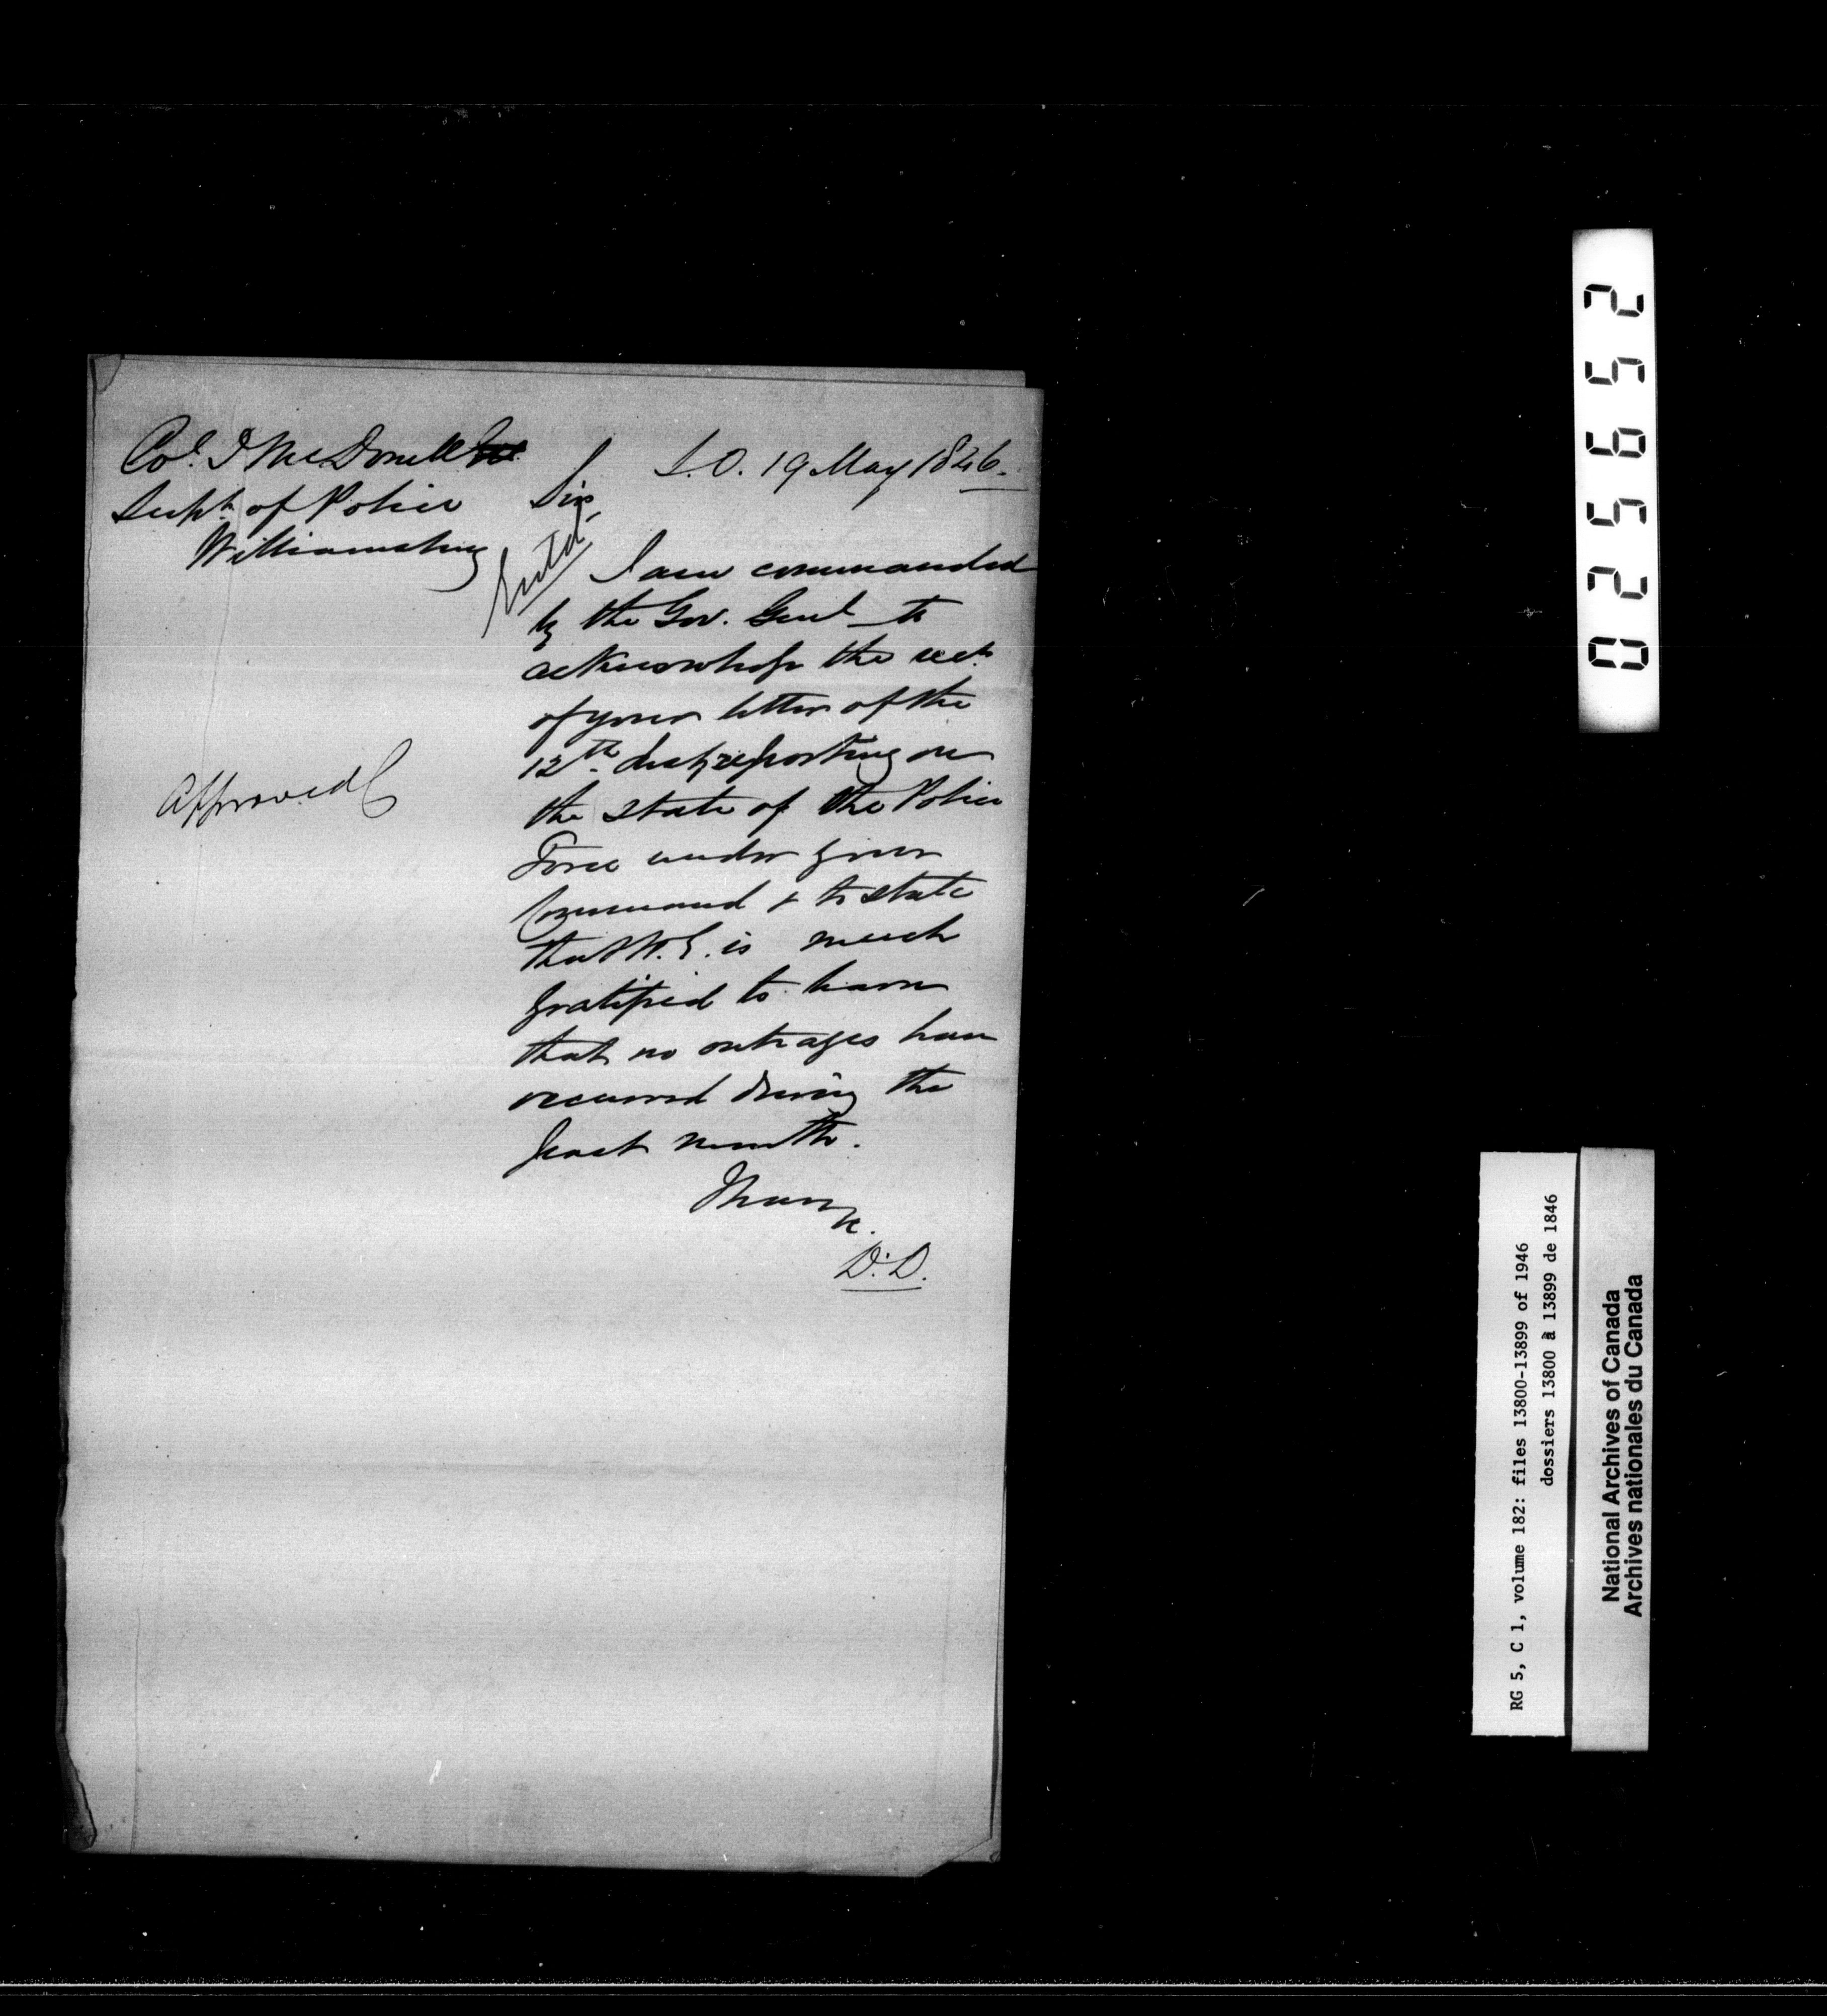 Col. D McDonell
Supt. of Police
Williamsburg
S.O. 19 May 1846.
Sir,
Entd
I am commanded
by the Gov. Genl to
acknowledge the rect.
of your letter of the
12th. inst, reporting on
the state of the Police
Force under your
Command & to state
that H. E. is much
gratified to learn
that no outrages have
occurred during the
past month.
I have
&c.
D.D.
Approved
025652
RG 5, C 1, volume 182: files 13800-13899 of 1946
dossiers 13800 à 13899 de 1846
National Archives of Canada
Archives nationales du Canada